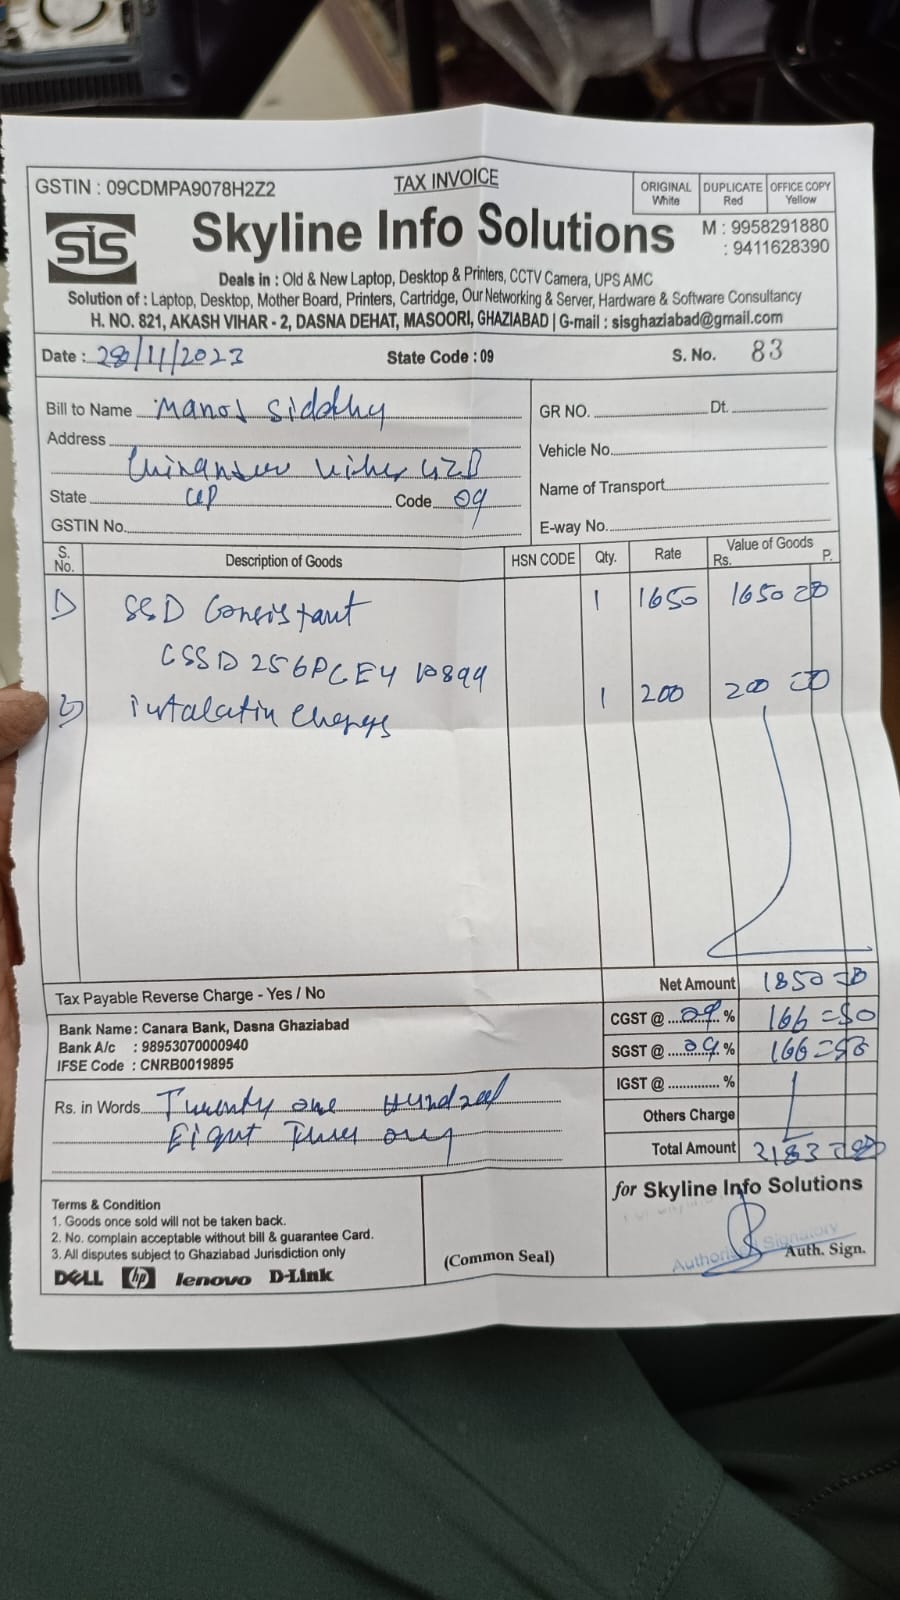 GSTIN : 09CDMPA9078H2Z2
TAX INVOICE
ORIGINAL White
DUPLICATE Red
OFFICE COPY Yellow
SiS
Skyline Info Solutions
M : 9958291880
: 9411628390
Deals in : Old & New Laptop, Desktop & Printers, CCTV Camera, UPS AMC
Solution of : Laptop, Desktop, Mother Board, Printers, Cartridge, Our Networking & Server, Hardware & Software Consultancy
H. NO. 821, AKASH VIHAR - 2, DASNA DEHAT, MASOORI, GHAZIABAD | G-mail : sisghaziabad@gmail.com
Date : 28/11/2023 State Code : 09 S. No. 83
Bill to Name Manoj
Address
GZB
State UP Code 09
GSTIN No.
GR NO. Dt.
Vehicle No.
Name of Transport
E-way No.
S. No. Description of Goods HSN CODE Qty. Rate Value of Goods Rs. P.
1) SSD Consistant 1 1650 1650 00
CSSD256PCEY 10899
2) intalatin Charges 1 200 200 00
Tax Payable Reverse Charge - Yes / No
Net Amount 1850=00
Bank Name : Canara Bank, Dasna Ghaziabad
Bank A/c : 98953070000940
IFSE Code : CNRB0019895
CGST @ 09 % 166=50
SGST @ 09 % 166=50
IGST @ %
Others Charge
Total Amount 2183=00
Rs. in Words Twenty one Hundred
Eight Three only
Terms & Condition
1. Goods once sold will not be taken back.
2. No. complain acceptable without bill & guarantee Card.
3. All disputes subject to Ghaziabad Jurisdiction only
DELL hp lenovo D-Link
(Common Seal)
for Skyline Info Solutions
Authorised Signatory
Auth. Sign.